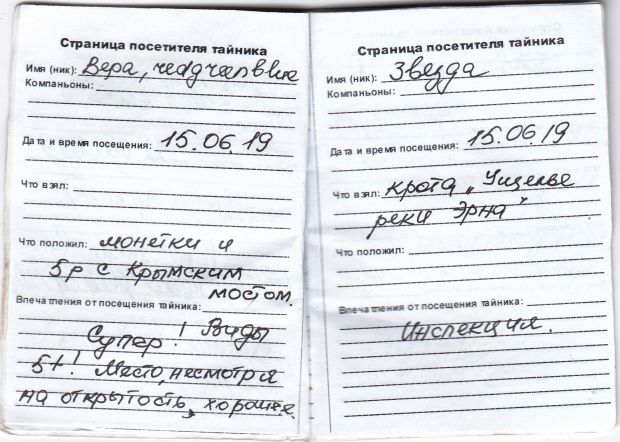 Страница посетителя тайника
Имя (ник): Вера,
Компаньоны:
Дата и время посещения: 15.06.19
Что взял:
Что положил: монетки и
5р с Крымским
мостом.
Впечатления от посещения тайника:
Супер! Виды
5+! Место, несмотря
на открытость, хорошее.
Страница посетителя тайника
Имя (ник): Звезда
Компаньоны:
Дата и время посещения: 15.06.19
Что взял: крота „Ущелье
реки Эрна“
Что положил:
Впечатления от посещения тайника:
Инспекция.